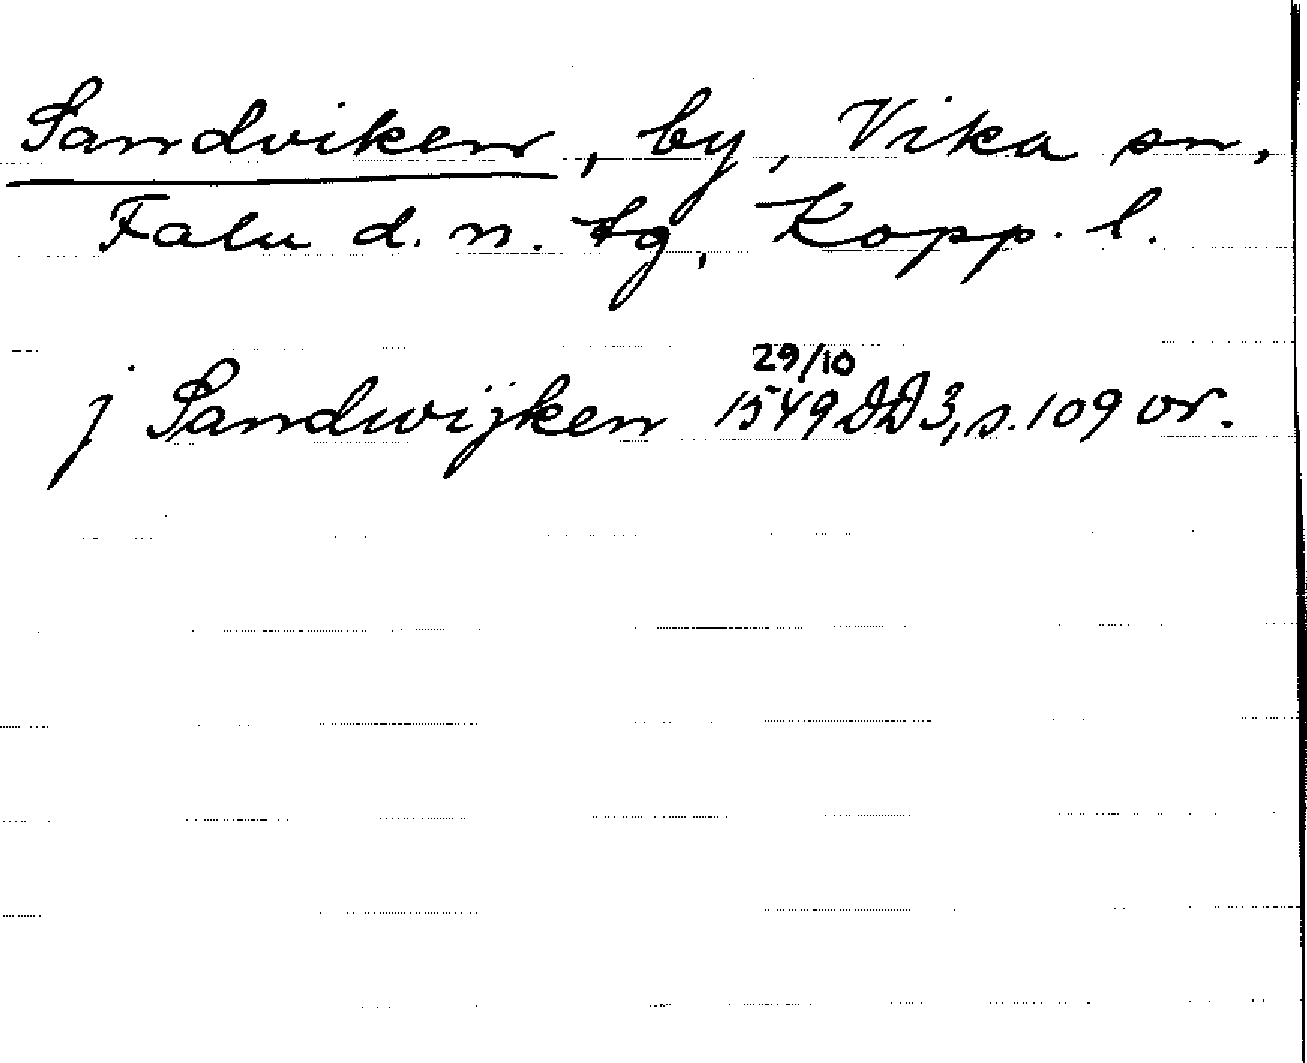 Sandviken, by, Vika sn,
Falu d. n. tg, Kopp. l.
j Sandwijken 29/10 1549 DD3, s. 109 vr.